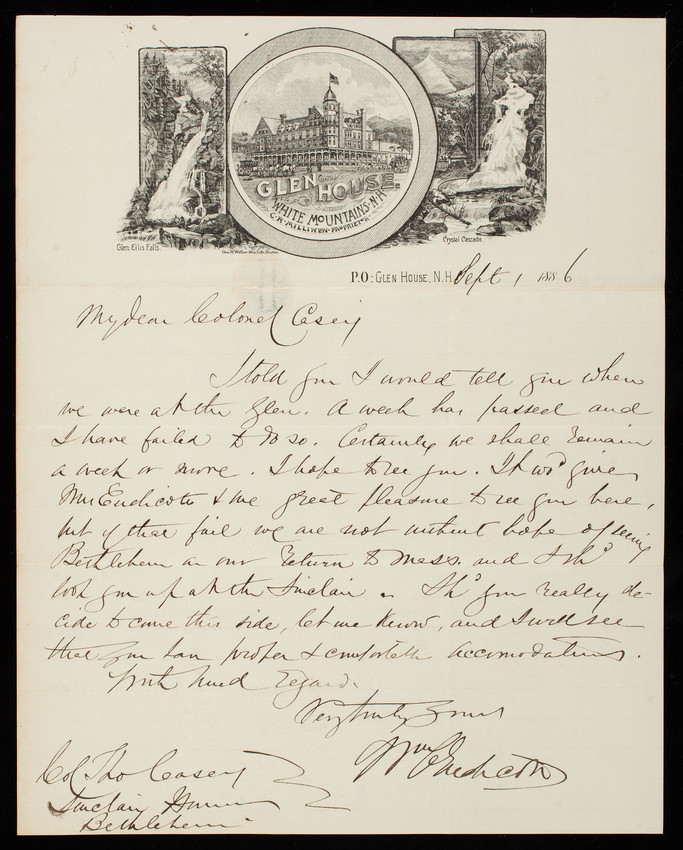 GLEN HOUSE.
WHITE MOUNTAINS, N.H.
C.R. MILLIKEN, PROPRIETOR
Glen Ellis Falls.
Geo. H. Walker & Co. Lith. Boston.
Crystal Cascade.
P.O: GLEN HOUSE, N.H. Sept 1, 1886
My dear Colonel Casey
I told you I would tell you when
we were at the Glen. A week has passed and
I have failed to do so. Certainly we shall remain
a week or more. I hope to see you. It wod give
Mrs Endicott & me great pleasure to see you here,
but if that fail we are not without hope of seeing
Bethlehem on our return to Mass. and I shd
look you up at the Sinclair. Shd you really de-
cide to come this side, let me know, and I will see
that you have proper & comfortable accomodations.
With kind regards
Very truly yours
Wm Endicott
Col Tho Casey
Sinclair House
Bethlehem